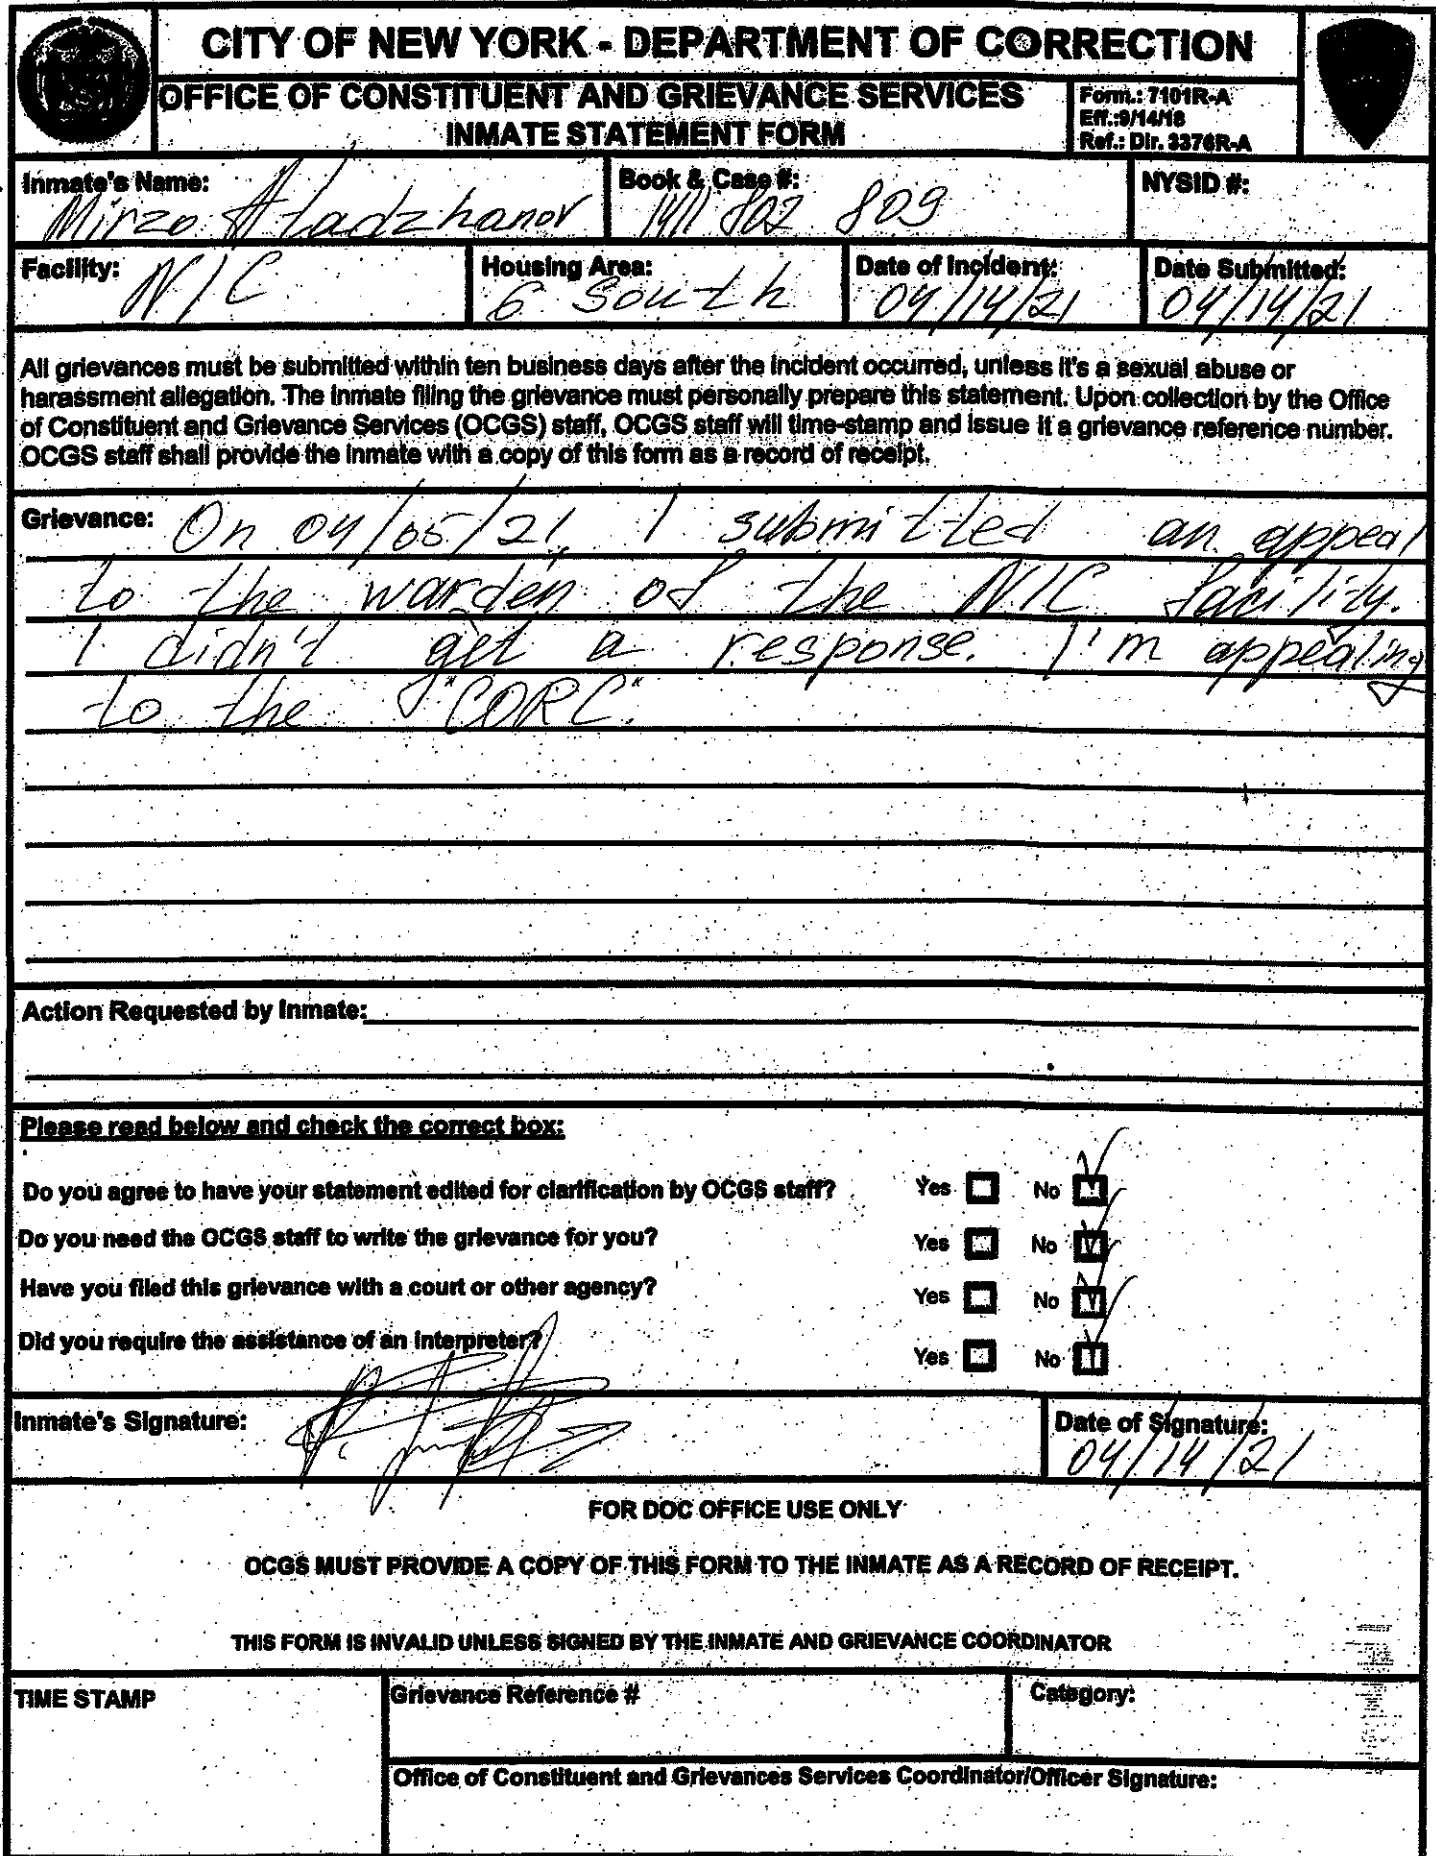 CITY OF NEW YORK - DEPARTMENT OF CORRECTION
OFFICE OF CONSTITUENT AND GRIEVANCE SERVICES
INMATE STATEMENT FORM
Form.: 7101R-A
Eff.:9/14/18
Ref.: Dir. 3376R-A
Inmate's Name:
Mirzo Atadzhanov
Book & Case #:
1411 802 809
NYSID #:
Facility:
NIC
Housing Area:
6 South
Date of Incident:
04/14/21
Date Submitted:
04/14/21
All grievances must be submitted within ten business days after the incident occurred, unless it's a sexual abuse or
harassment allegation. The inmate filing the grievance must personally prepare this statement. Upon collection by the Office
of Constituent and Grievance Services (OCGS) staff, OCGS staff will time-stamp and issue it a grievance reference number.
OCGS staff shall provide the inmate with a copy of this form as a record of receipt.
Grievance: On 04/05/21 I submitted an appeal
to the warden of the NIC facility.
I didn't get a response. I'm appealing
to the "CORC"
Action Requested by Inmate:
Please read below and check the correct box:
Do you agree to have your statement edited for clarification by OCGS staff? Yes No
Do you need the OCGS staff to write the grievance for you? Yes No
Have you filed this grievance with a court or other agency? Yes No
Did you require the assistance of an interpreter? Yes No
Inmate's Signature:
Date of Signature:
04/14/21
FOR DOC OFFICE USE ONLY
OCGS MUST PROVIDE A COPY OF THIS FORM TO THE INMATE AS A RECORD OF RECEIPT.
THIS FORM IS INVALID UNLESS SIGNED BY THE INMATE AND GRIEVANCE COORDINATOR
TIME STAMP
Grievance Reference #
Category:
Office of Constituent and Grievances Services Coordinator/Officer Signature: